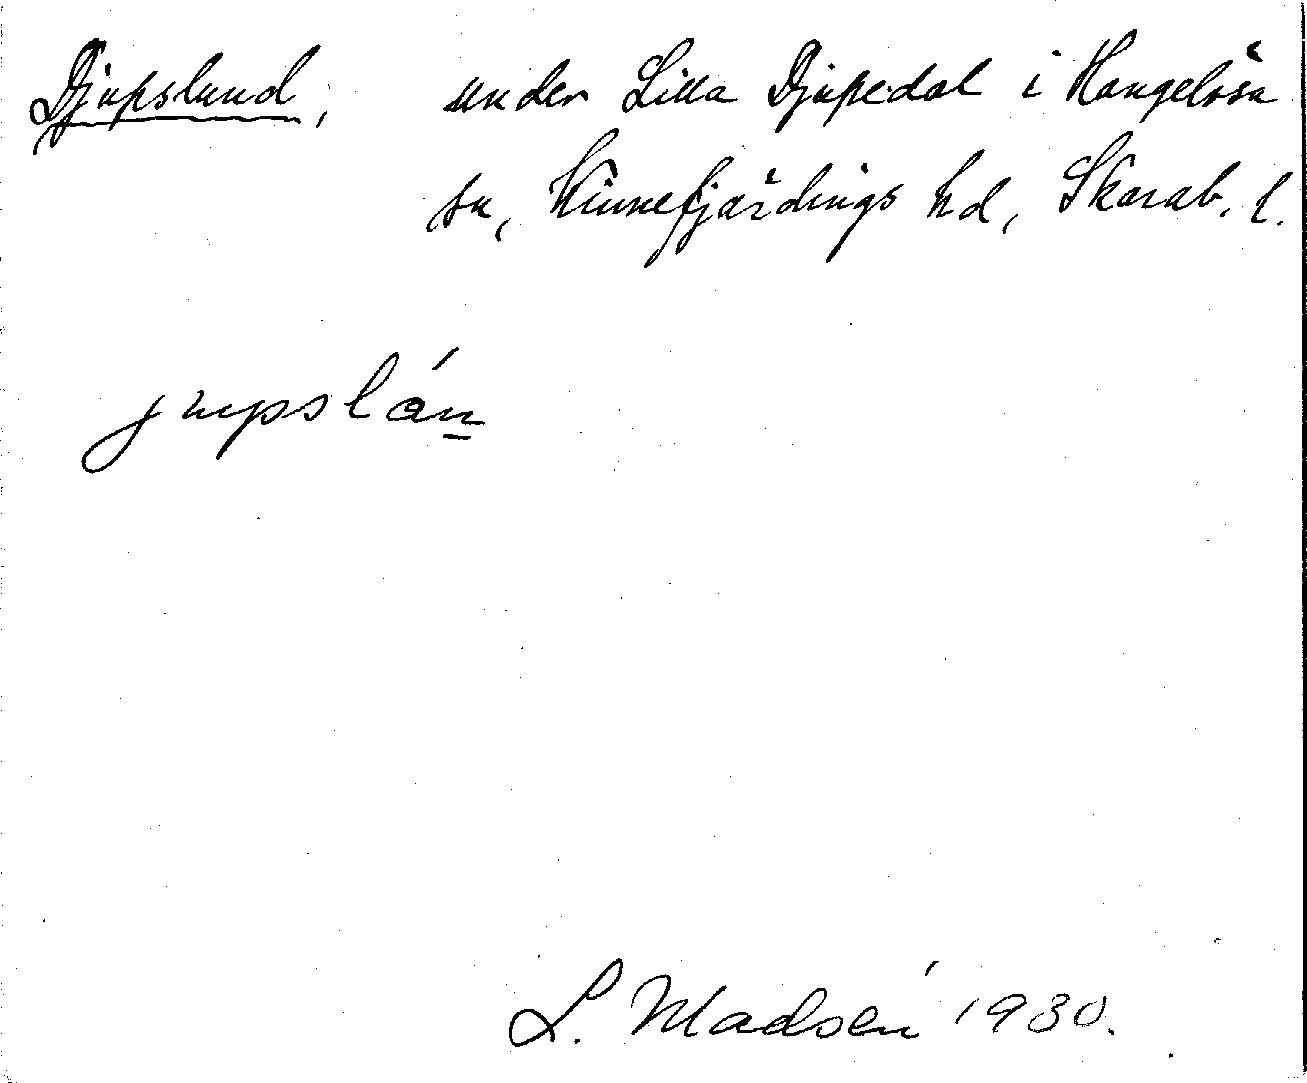 Djupslund, under Lilla Djupedal i Hangelösa
sn, Kinnefjärdings hd, Skarab. l.
L. Madsén 1930.